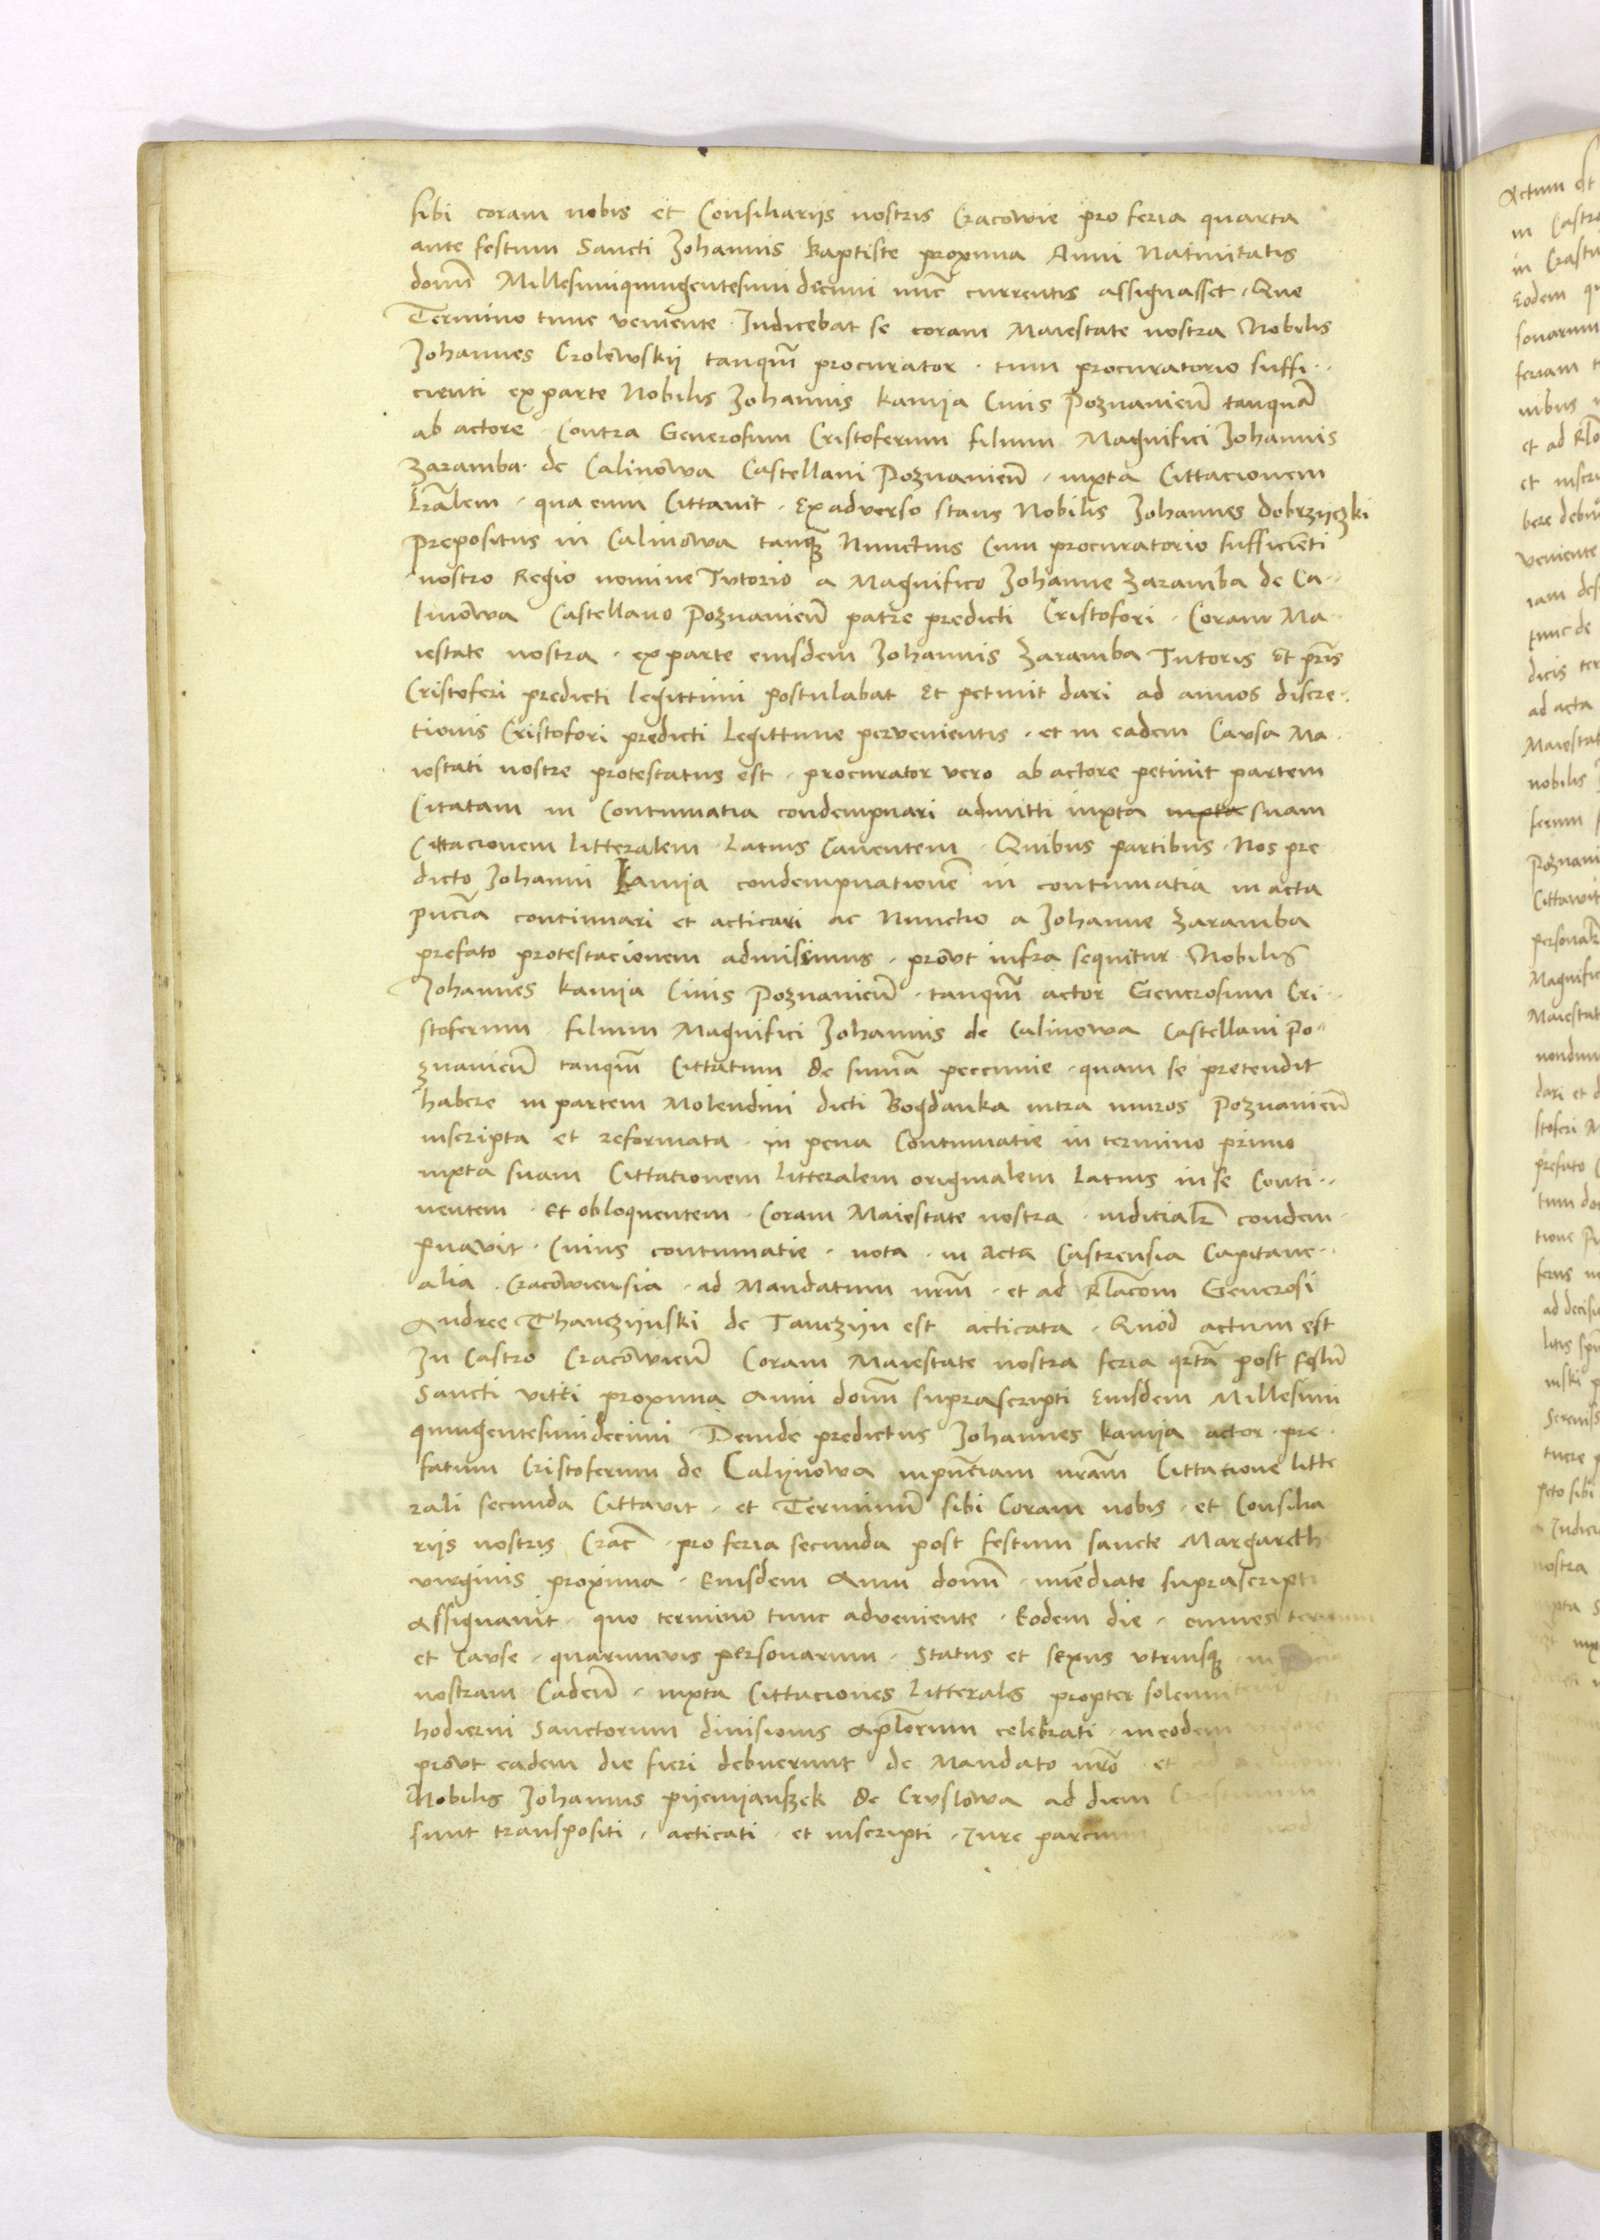 sibi coram nobis et Consiliariis nostris Cracowie pro feria quarta
ante festum Sancti Johannis Baptiste proxima Anni Nativitatis
domĩ Millesimiquingentesimi decimi nũc currentis assignasset. Que
Termino tunc veniente. Iudicebat se coram Maiestate nostra Nobilis
Johannes Crolewskij tanqũm procurator. cum procuratorio suffi..
cienti ex parte Nobilis Johannis Kamija Civis Poznanieñ tanquã
ab actore. Contra Generosum Cristoferum filium Magnifici Johannis
Zaramba. de Calinowa Castellani Poznanieñ. iuxta Cittacionem
Lrãlem. qua eum Cittavit. Ex adverso stans Nobilis Johannes dobrzijczki
Prepositus in Calinowa tanqȝ Nunctius Cum procuratorio sufficiẽti
nostro Regio nomine Tutorio a Magnifico Johanne Zaramba de Ca..
linowa Castellano Poznanieñ patre predicti Cristofori. Coram Ma..
iestate nostra. ex parte eiusdem Johannis Zaramba Tutoris et pr̃is
Cristoferi predicti legittimi postulabat et petiuit dari ad annos discre..
tionis Cristofori predicti Legittime pervenientis. et in eadem Causa Ma.
iestati nostre protestatus est. procurator vero ab actore petiuit partem
Citatam in Contumatia condempnari admitti iuxta iuxta suam
Cittacionem litteralem. Latius Caventem. Quibus partibus. Nos pre
dicto Johanni Kamija condempnationẽ in contumatia in acta
pñcia continuari et acticari ac Nunctio a Johanne Zaramba
prefato protestacionem admisimus. prout infra sequitur. Nobilis
Johannes Kamija Civis Poznanieñ. tanqũm actor Generosum Cri..
stoferum. filium Magnifici Johannis de Calinowa Castellani Po..
znanieñ tanqũm Cittatum de sumã peccunie. quam se pretendit
habere in partem Molendini dicti Bogdanka intra muros Poznanieñ
inscripta et reformata. in pena Contumatie in termino primo
iuxta suam Cittationem litteralem originalem Latius in se Conti..
nentem. Et obloquentem. Coram Maiestate nostra. iudicialr̃ condem.
pnavit. Cuius contumatie. nota. in acta Castrensia Capitane..
alia. Cracowiensia. ad Mandatum nr̃m. et ad Rlacõm Generosi
Andree Thanczijnski de Tanczijn est acticata. Quod actum est
In Castro Cracowieñ Coram Maiestate nostra feria qrtã post festũ
Sancti vitti proxima Anni domĩ suprascripti Eiusdem Millesimi
quingentesimi decimi. Deinde predictus Johannes Kamija actor. pre.
fatum Cristoferum de Calijnowa in pñtiam nr̃am Cittatione litte
rali secunda Cittavit. et Terminũ sibi Coram nobis. et Consilia
riis nostris Crac̃. pro feria secunda post festum sancte Margareth
virginis proxima. Eiusdem Anni domĩ. imẽdiate suprascripti
Assignavit. quo termino tunc adveniente. Eodem die. omnes termini
et Cause. quarumvis personarum. Status et sexus utriusqȝ. in
nostram Cadeñ. iuxta Cittaciones Litterales propter solemnitatem
hodierni Sanctorum divisionis Apl̃orum celebrati. in eodem
prout eadem die fieri debuerunt de Mandato nr̃o et ad
Nobilis Johannis pijenijanszek de Cruslowa ad diem Crastinum
sunt transpositi. acticati. et inscripti. Jure parcium